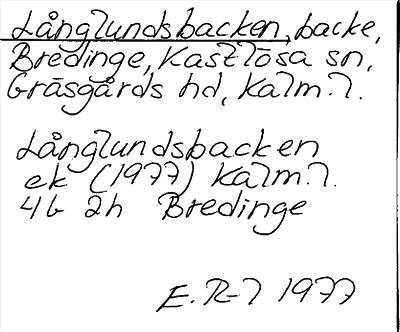 Långlundsbacken, backe,
Bredinge, Kastlösa sn,
Gräsgårds hd, Kalm. l.
Långlundsbacken
ek (1977) Kalm. l.
4G 2h Bredinge
E. R-l 1977